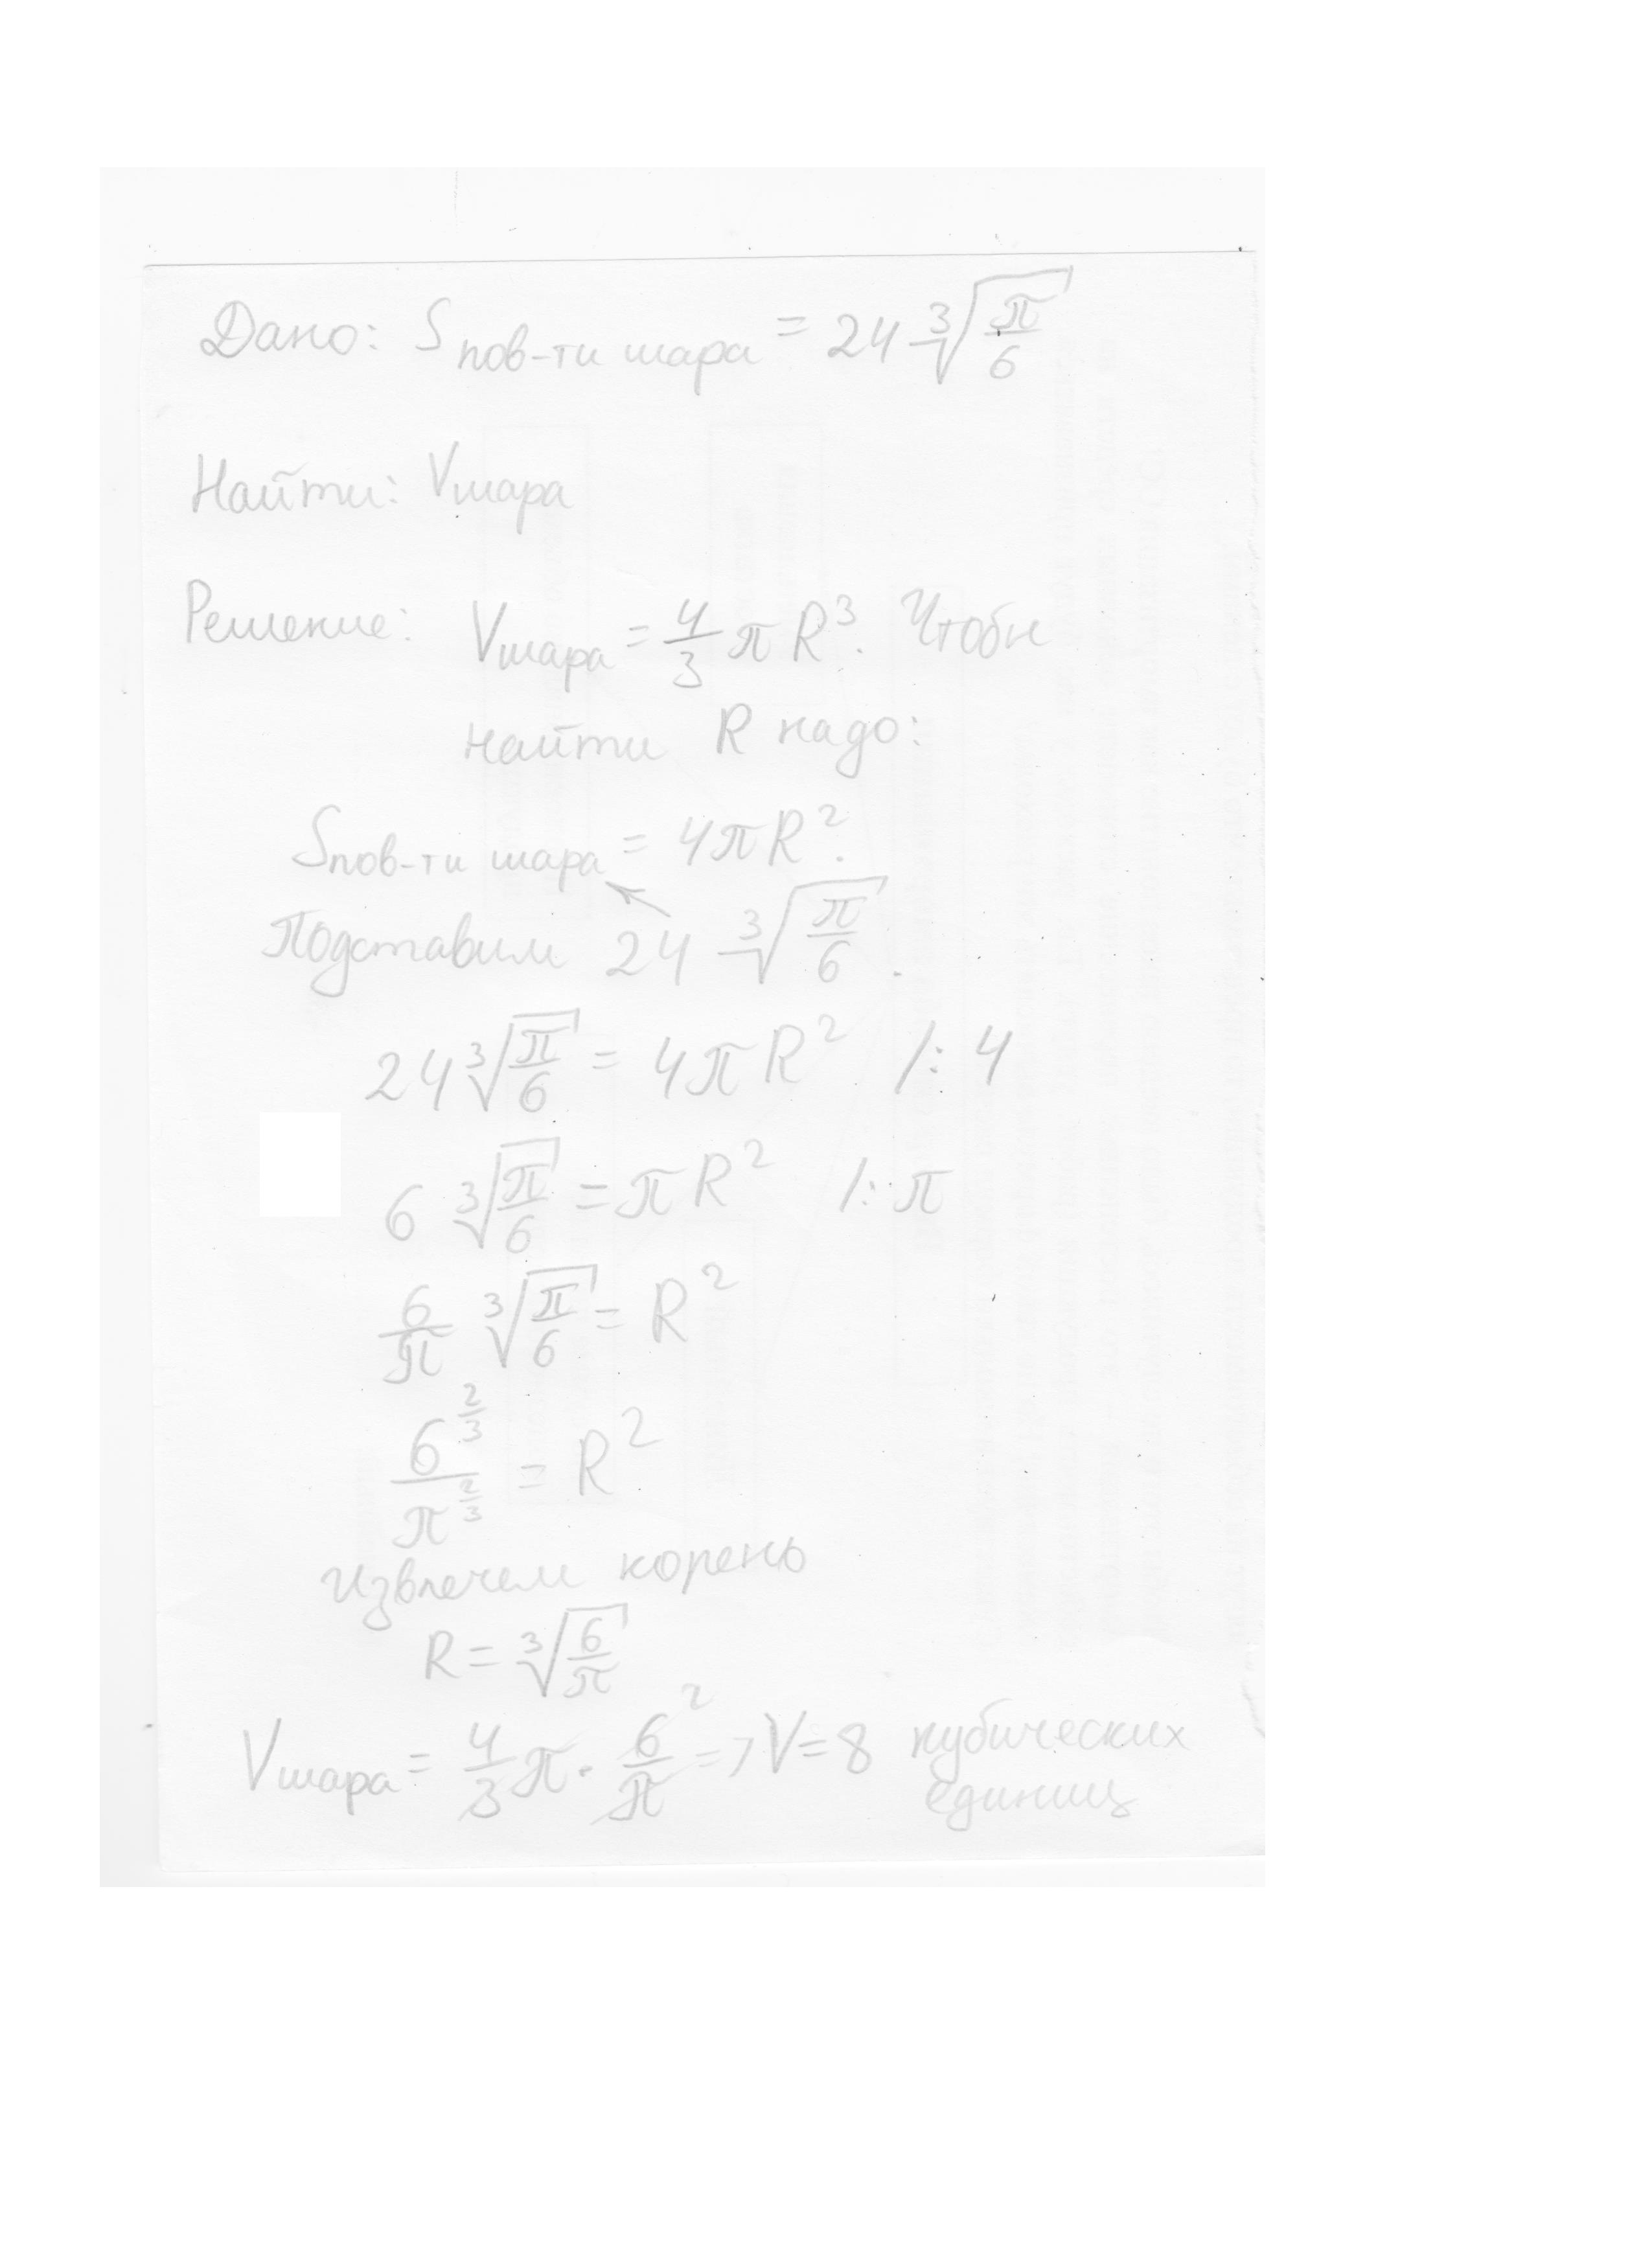 Дано: S пов-ти шара = 24 ∛(π/6)
Найти: Vшара
Решение: Vшара = 4/3 π R³. Чтобы
найти R надо:
Sпов-ти шара = 4πR².
Подставим 24 ∛(π/6).
24 ∛(π/6) = 4πR² /: 4
6 ∛(π/6) = πR² /: π
6/π ∛(π/6) = R²
6^(2/3) / π^(2/3) = R²
извлечем корень
R = ∛(6/π)
Vшара = 4/3 π · 6/π 2 => V = 8 кубических
единиц